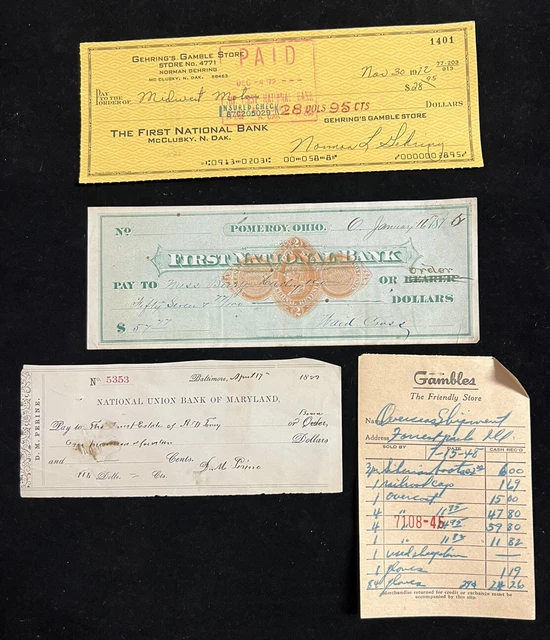 GEHRING'S GAMBLE STORE
STORE NO. 4771
NORMAN GEHRING
MC CLUSKY, N. DAK. 58463
1401
PAID
77-203
913
Nov 30 1972
PAY TO THE ORDER OF Midwest $28 95
INSURED CHECK
870205029
28 DOLS 95 CTS
DOLLARS
THE FIRST NATIONAL BANK
MCCLUSKY, N. DAK.
GEHRING'S GAMBLE STORE
Norman L Gehring
No
POMEROY, OHIO, January 16 187
FIRST NATIONAL BANK
order
PAY TO Miss OR BEARER
Fifty Seven & DOLLARS
$57
D. M. PERINE.
No. 5353
Baltimore, April 17th 18
NATIONAL UNION BANK OF MARYLAND.
Pay to The Estate of or Order,
One hundred & Dollars
and Cents.
114 Dolls. — Cts.
D. M. Perine
Gambles
The Friendly Store
Name Overseas Shipment
Address Forrest park Ill.
SOLD BY DATE CASH REC'D
7-13-45
6 00
1 cap 1 69
1 overcoat 15 00
4 " 11 95 47 80
4 " 14 95 59 80
7108-45
1 " 11 82
1 used —
8 gloves 1 19
84 gloves 29¢ 24 26
Merchandise returned for credit or exchange must be
accompanied by this slip.